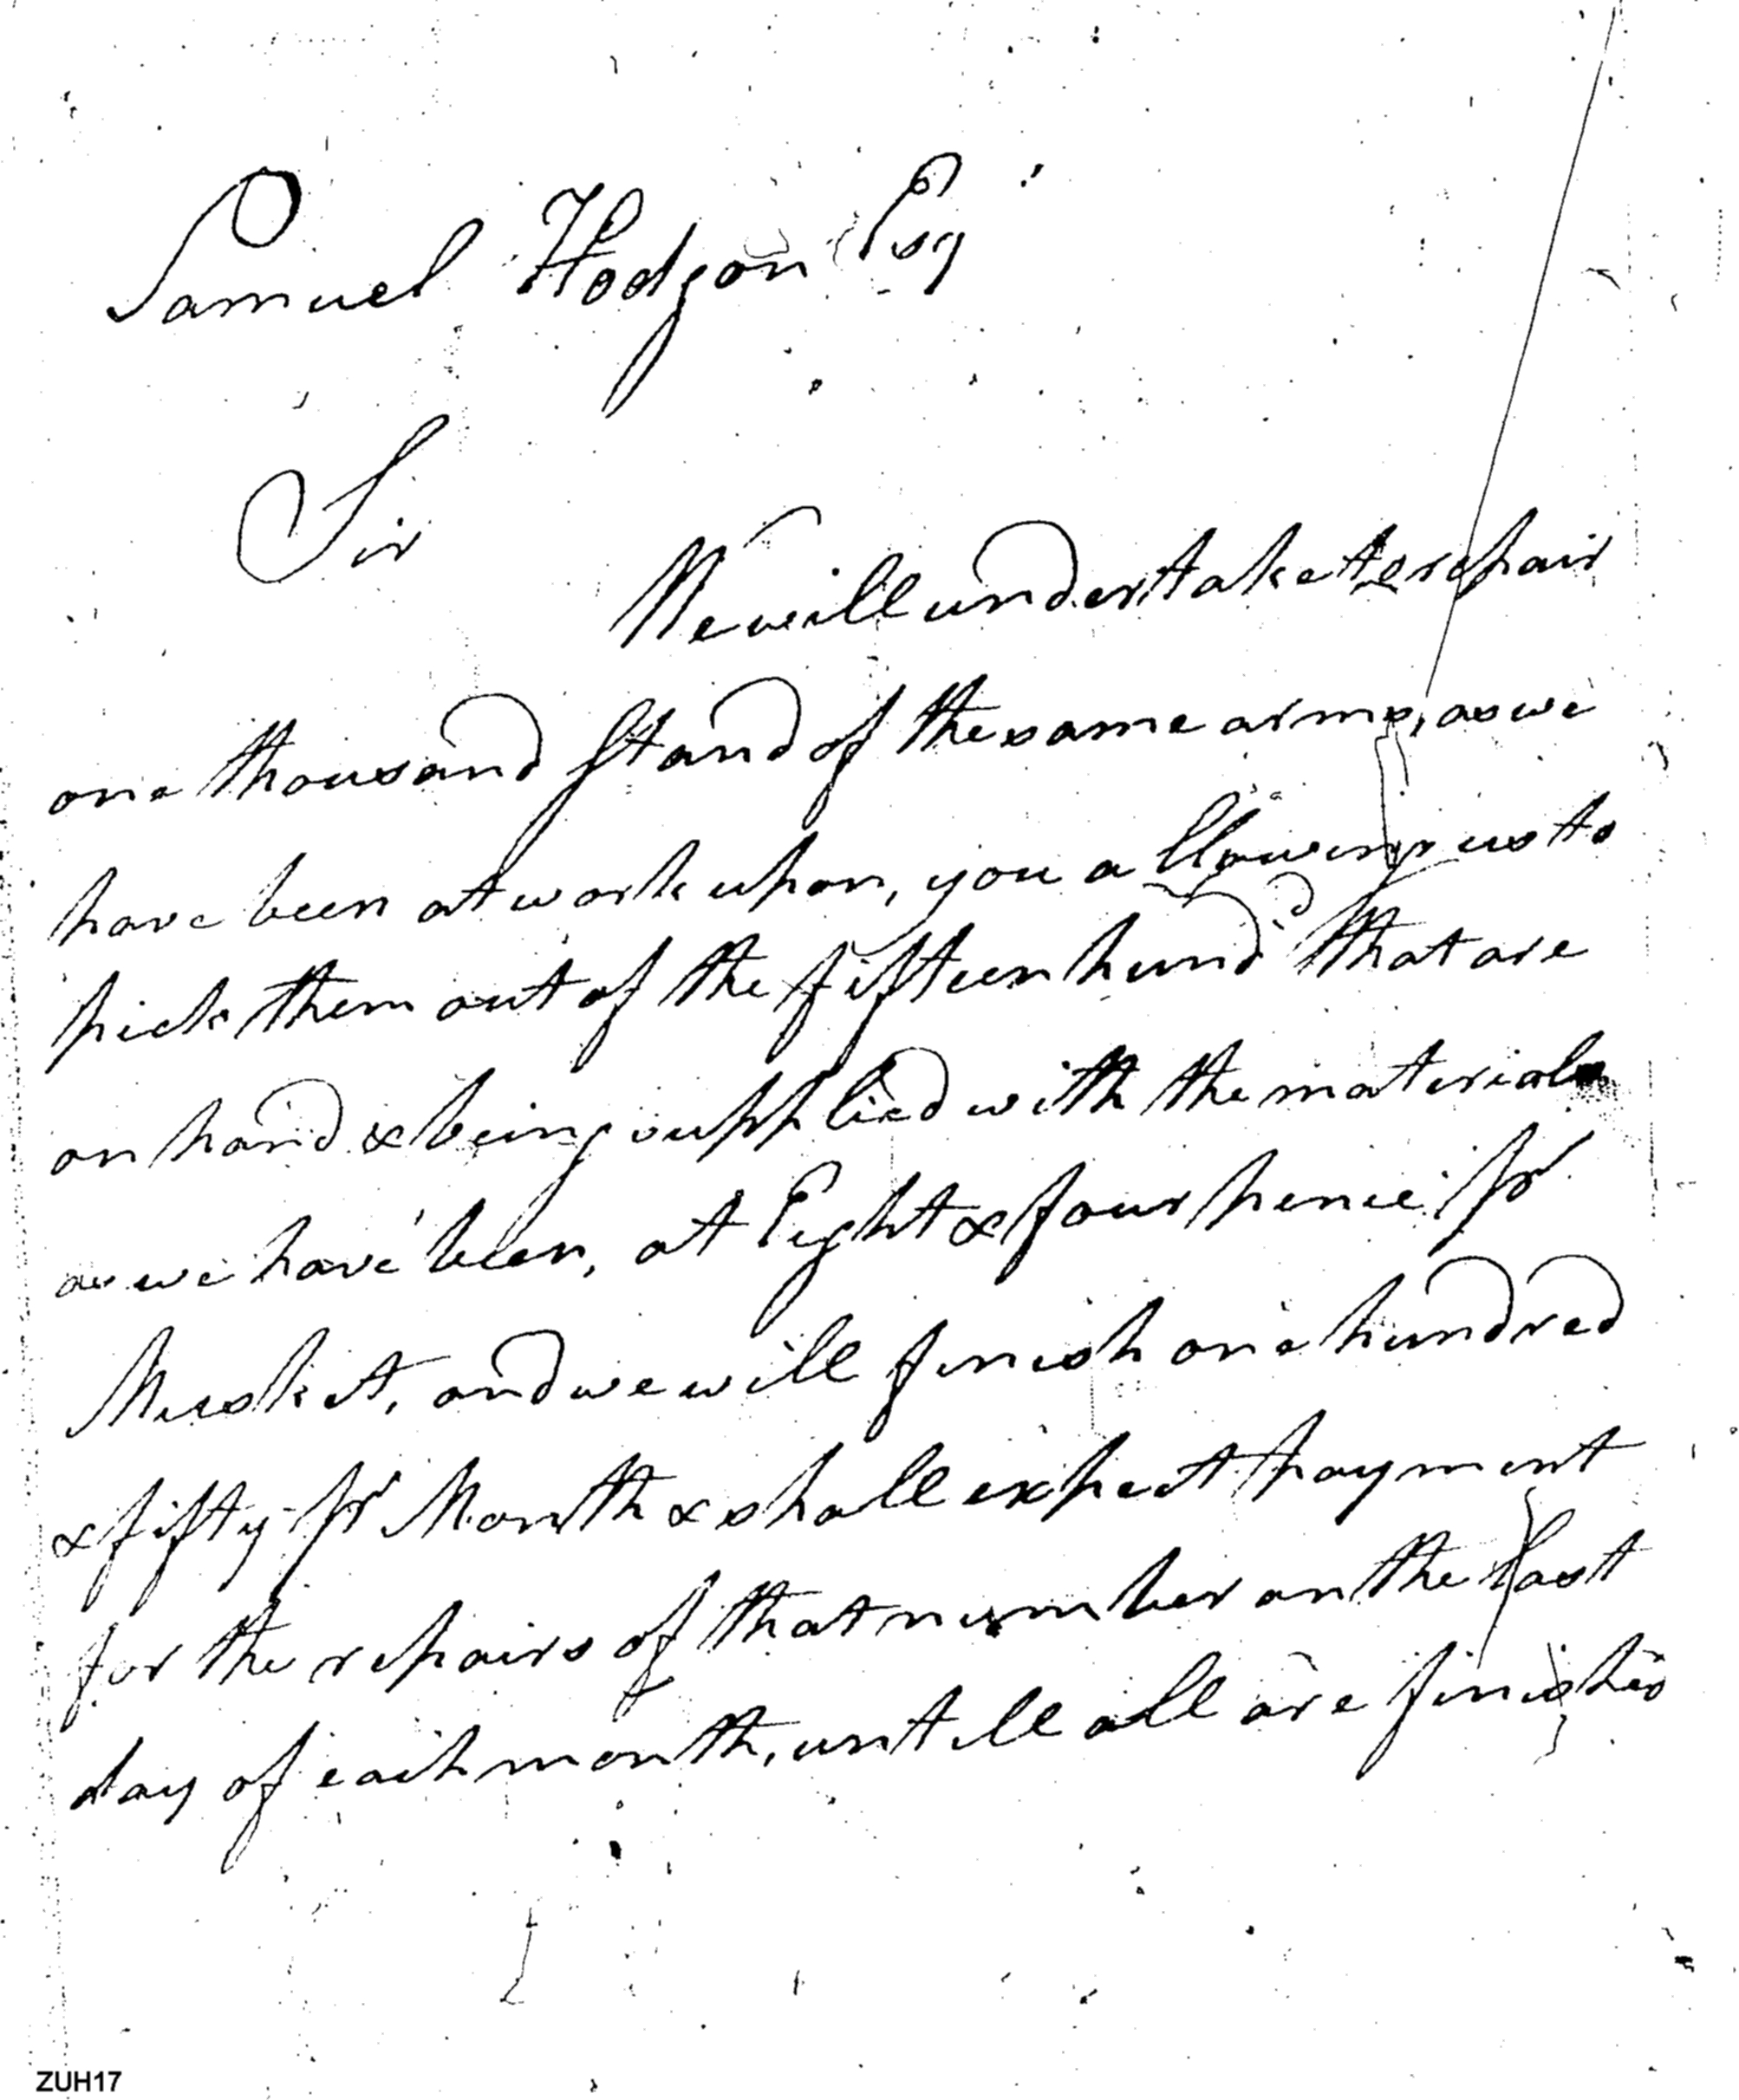 Samuel Hodgson Esqr
Sir
We will undertake to repair
one thousand Stand of the same arms, as we
have been at work upon, you allowing us to
pick them out of the fifteen hund that are
on hand & being supplied with the materials
as we have been, at Eight & four pence pr
Musket, and we will finish one hundred
& fifty pr Month & shall expect payment
for the repairs of that number on the last
day of each month, untill all are finished
ZUH17